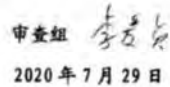 审查组
2020年7月29日